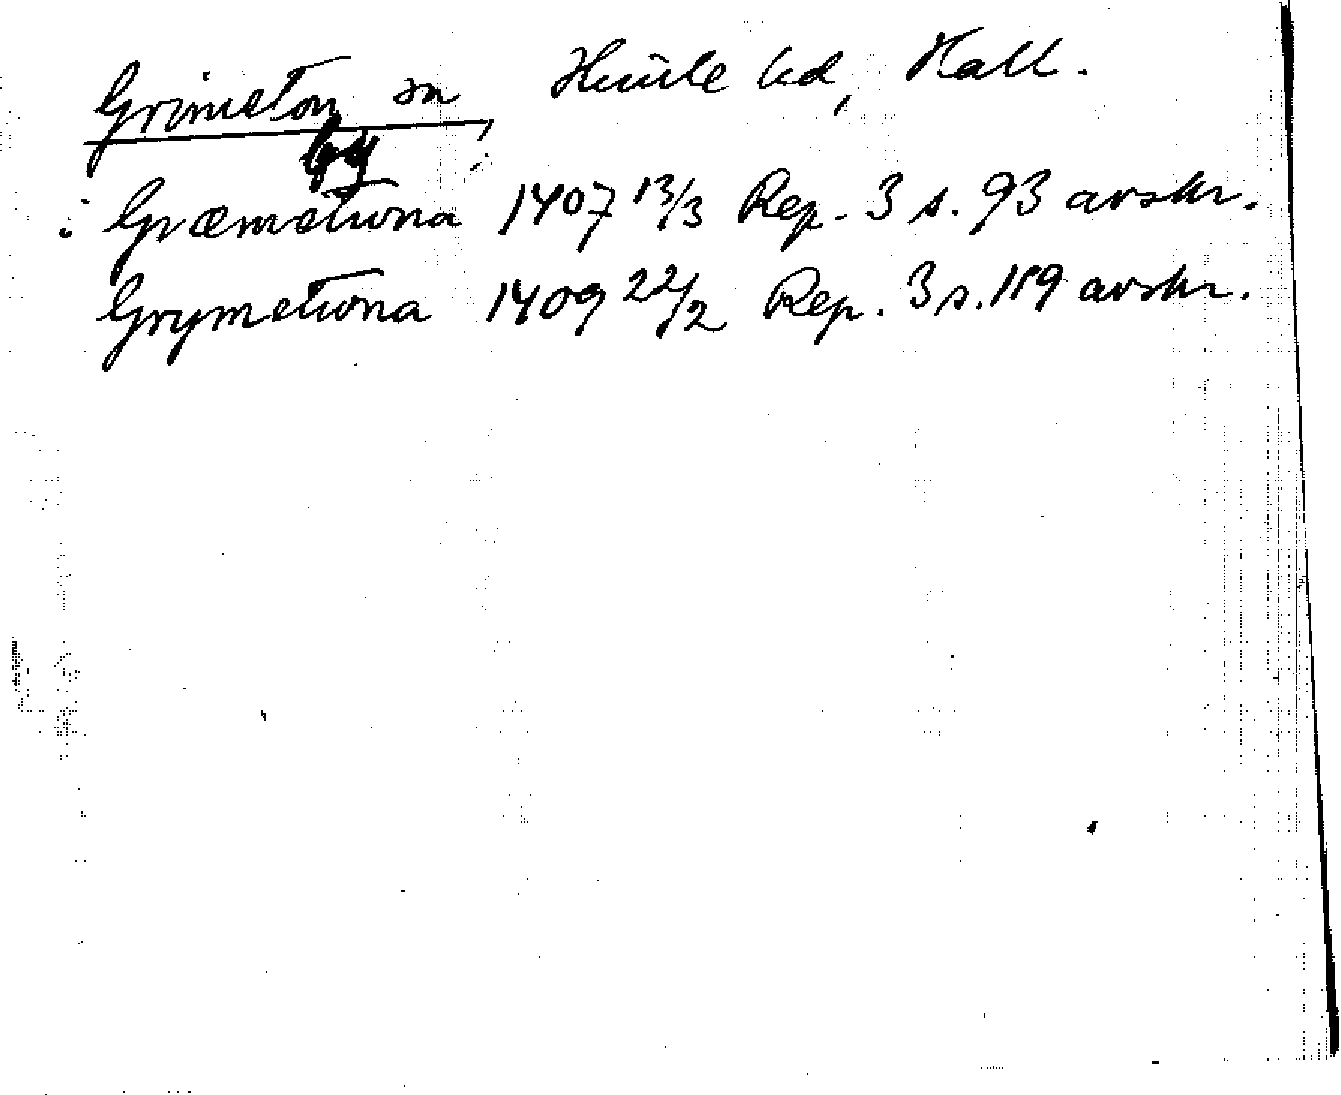 Grimeton sn, Himle hd, Hall.
by
i Græmetwna 1407 13/3 Rep. 3 s. 93 avskr.
Grymetwna 1409 22/2 Rep. 3 s. 189 avskr.